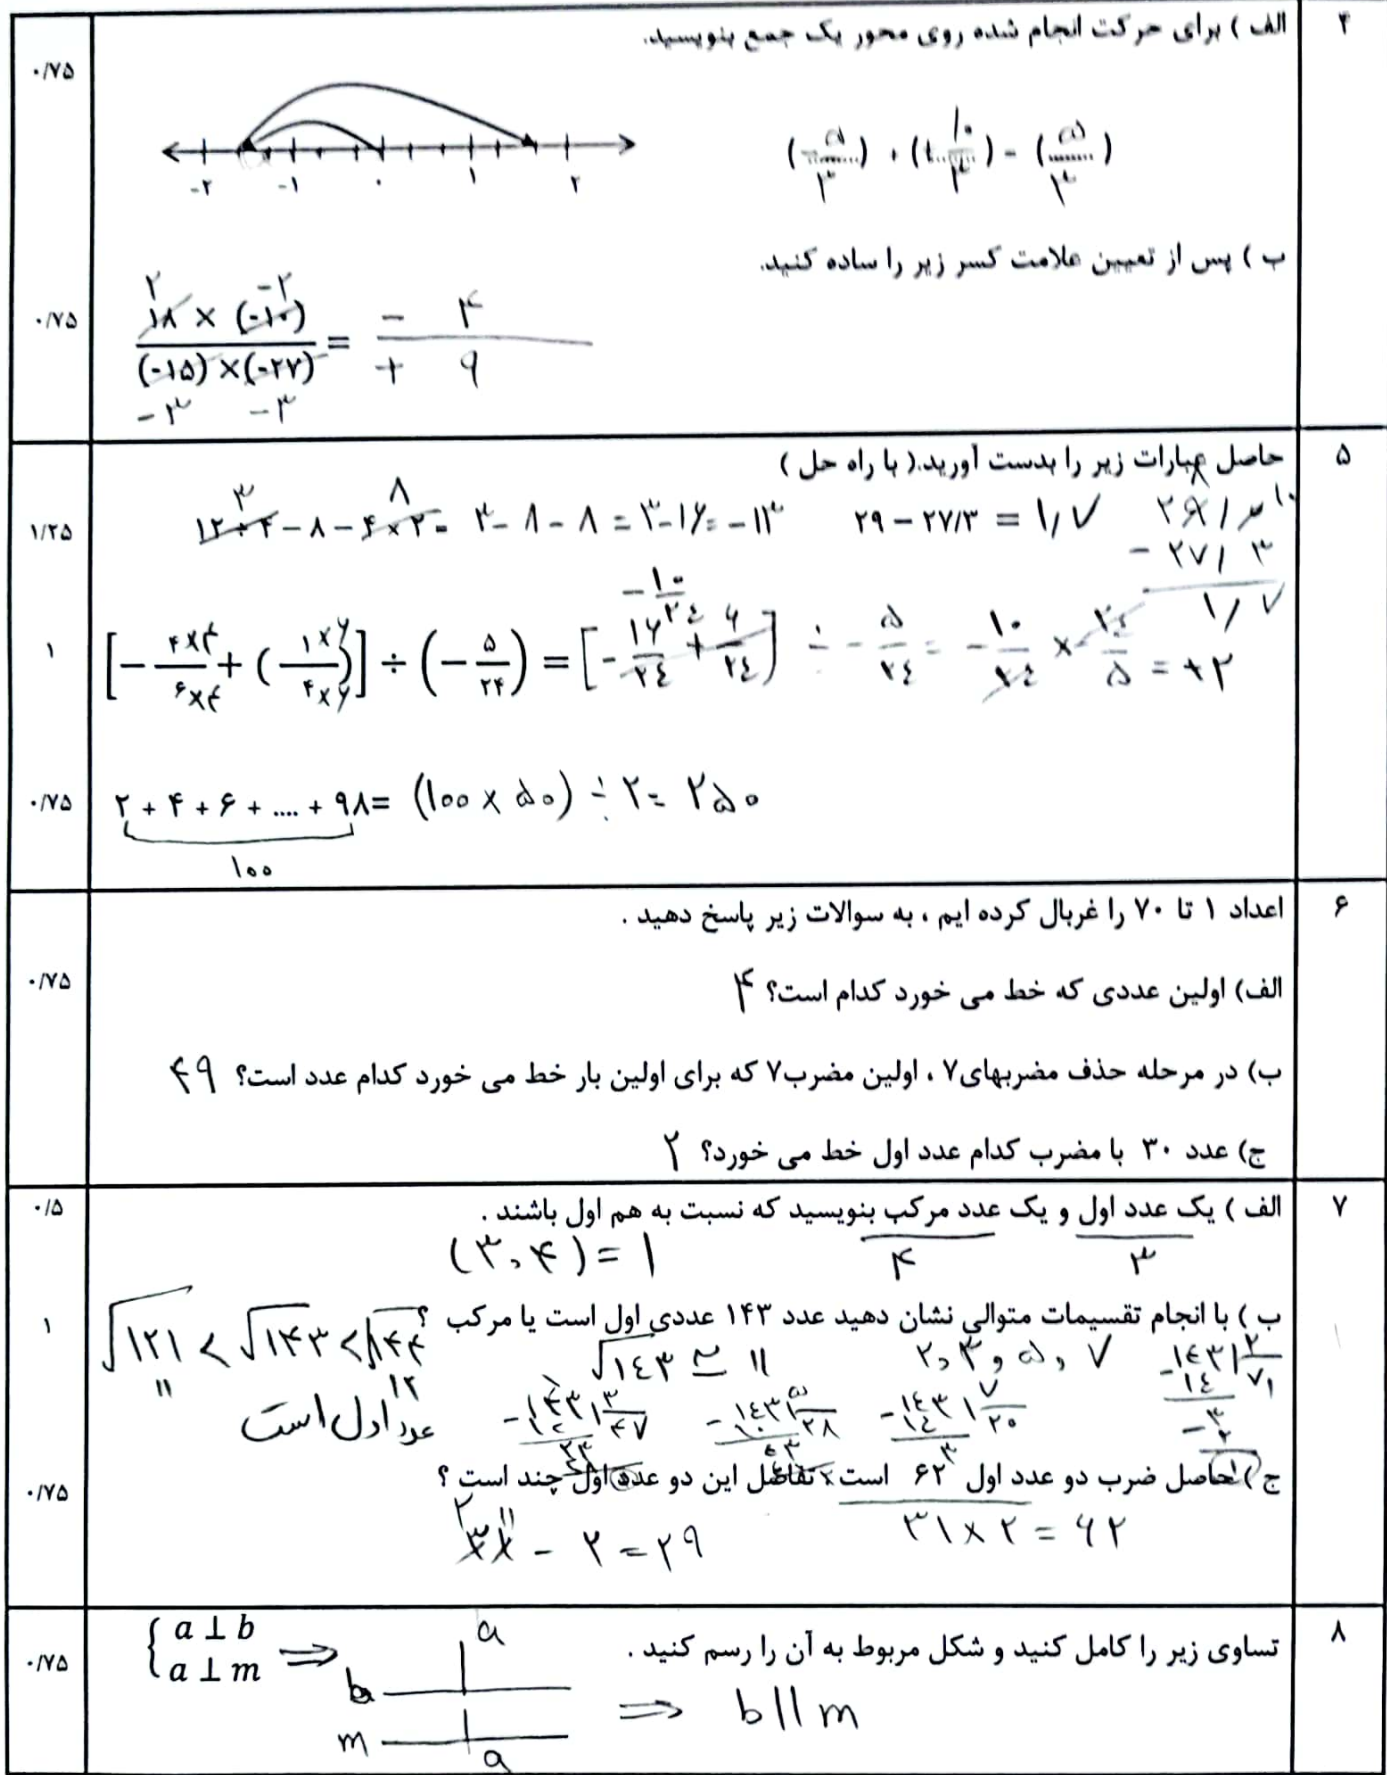 ۴
الف ) برای حرکت انجام شده روی محور یک جمع بنویسید.
۰/۷۵
-۲ -۱ ۰ ۱ ۲
(-۵/۳) + (+۱۰/۳) = (۵/۳)
ب ) پس از تعیین علامت کسر زیر را ساده کنید.
۰/۷۵
۲ -۲
۱۸ × (-۱۰)
(-۱۵) × (-۲۷)
-۳ -۳
= - ۴
+ ۹
۵
حاصل عبارات زیر را بدست آورید.( با راه حل )
۱/۲۵
۳ ۸
۱۲ ÷ ۴ - ۸ - ۴ × ۲ = ۳ - ۸ - ۸ = ۳ - ۱۶ = -۱۳
۲۹ - ۲۷/۳ = ۱/۷
- ۲۷/۳
۱/۷
۱
-۱۰/۲۴
[-۴×۴/۶×۴ + (۱×۶/۴×۶)] ÷ (-۵/۲۴) = [-۱۶/۲۴ + ۶/۲۴] ÷ -۵/۲۴ = -۱۰/۲۴ × -۲۴/۵ = +۲
۰/۷۵
۲ + ۴ + ۶ + .... + ۹۸ = (۱۰۰ × ۵۰) ÷ ۲ = ۲۵۰
۱۰۰
۶
اعداد ۱ تا ۷۰ را غربال کرده ایم ، به سوالات زیر پاسخ دهید .
۰/۷۵
الف) اولین عددی که خط می خورد کدام است؟ ۴
ب) در مرحله حذف مضربهای۷ ، اولین مضرب۷ که برای اولین بار خط می خورد کدام عدد است؟ ۴۹
ج) عدد ۳۰ با مضرب کدام عدد اول خط می خورد؟ ۲
۷
الف ) یک عدد اول و یک عدد مرکب بنویسید که نسبت به هم اول باشند .
۰/۵
۳ ۴ (۳,۴) = ۱
ب ) با انجام تقسیمات متوالی نشان دهید عدد ۱۴۳ عددی اول است یا مرکب ؟
۱
√۱۲۱ < √۱۴۳ < √۱۴۴
۱۱ ۱۲
√۱۴۳ ≃ ۱۱
۲, ۳, ۵, ۷
۱۴۳ ۲
۱۴ ۷۱
۳
۲
۱
۱۴۳ ۷
۱۴ ۲۰
۳
۱۴۳ ۵
۱۰ ۲۸
۴۳
۱۴۳ ۳
۱۲ ۴۷
۲۳
عدد اول است
ج ) حاصل ضرب دو عدد اول ۶۲ است ، تفاضل این دو عدد اول چند است ؟
۰/۷۵
۳۱ × ۲ = ۶۲
۲ ۱۱
۳۱ - ۲ = ۲۹
۸
تساوی زیر را کامل کنید و شکل مربوط به آن را رسم کنید .
۰/۷۵
a ⊥ b
a ⊥ m
⇒
a
b
m
a
⇒ b || m